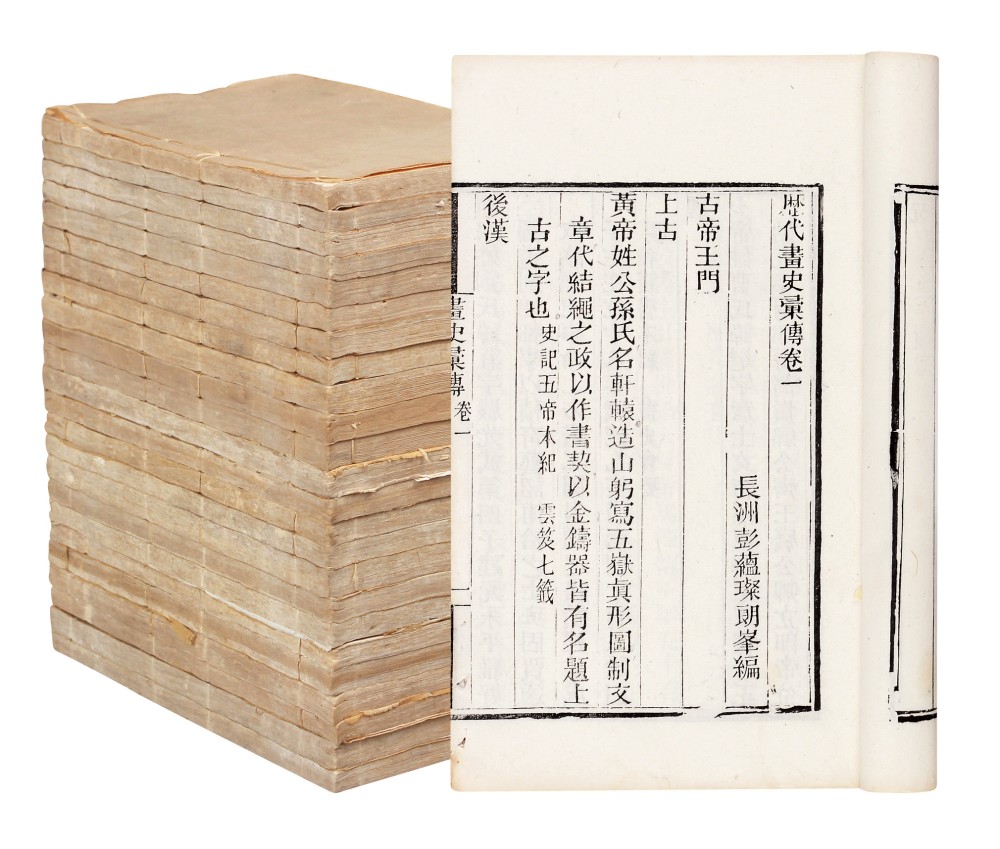 歷代畫史彙傳卷一
長洲彭蘊璨朗峯編
古帝王門
上古
黃帝姓公孫氏名軒轅造山躬寫五嶽眞形圖制文
章代結繩之政以作書契以金鑄器皆有名題上
古之字也 史記五帝本紀 雲笈七籤
後漢
畫史彙傳 卷一